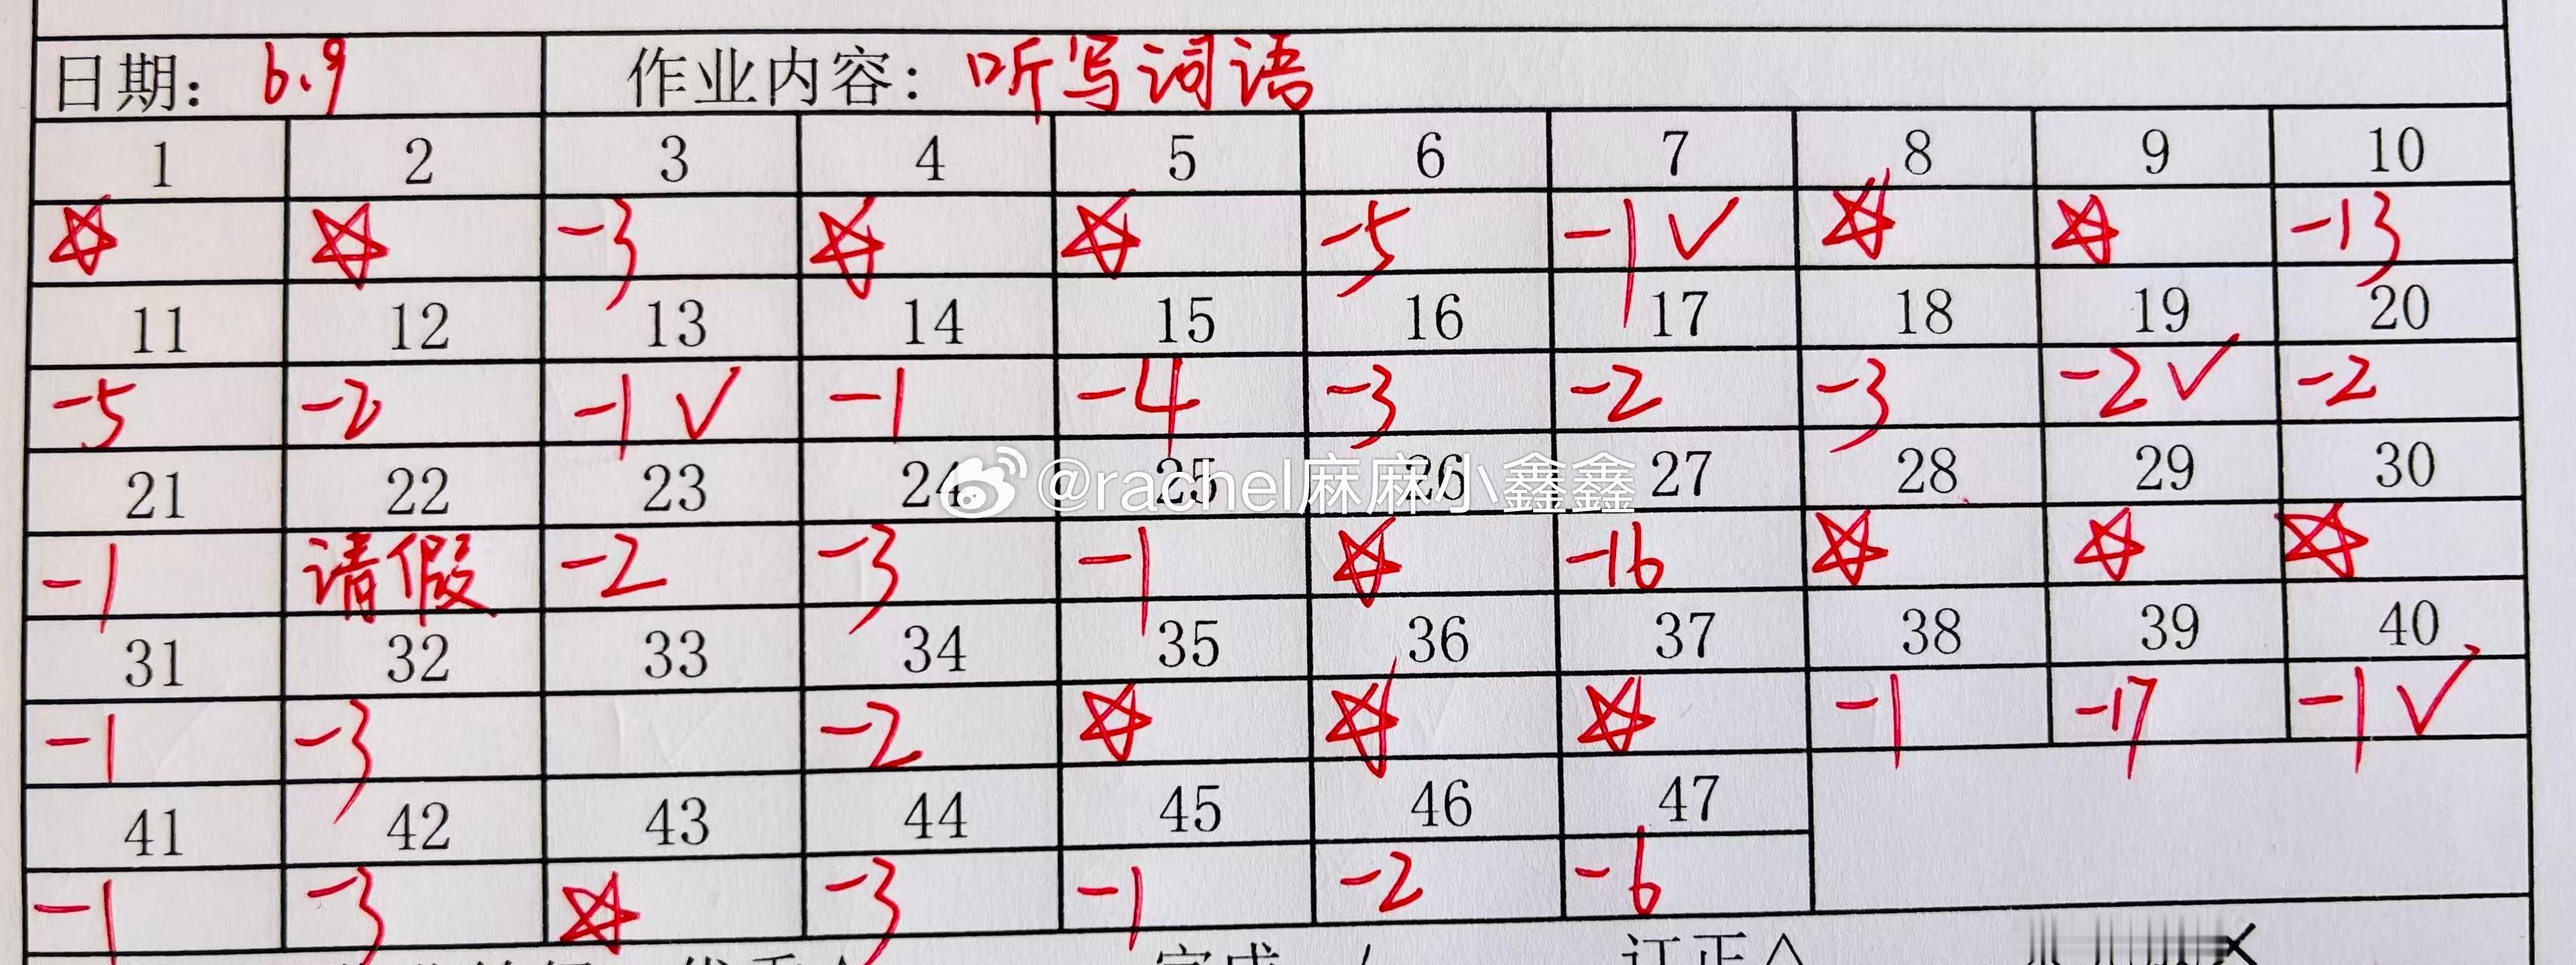 日期：6.9 作业内容：听写词语
1 2 3 4 5 6 7 8 9 10
☆ ☆ -3 ☆ ☆ -5 -1 ✓ ☆ ☆ -13
11 12 13 14 15 16 17 18 19 20
-5 -2 -1 ✓ -1 -4 -3 -2 -3 -2 ✓ -2
21 22 23 24 25 26 27 28 29 30
@rachel麻麻小鑫鑫
-1 请假 -2 -3 -1 ☆ -16 ☆ ☆ ☆
31 32 33 34 35 36 37 38 39 40
-1 -3 -2 ☆ ☆ ☆ -1 -17 -1 ✓
41 42 43 44 45 46 47
-1 -3 ☆ -3 -1 -2 -6
完成 订正△